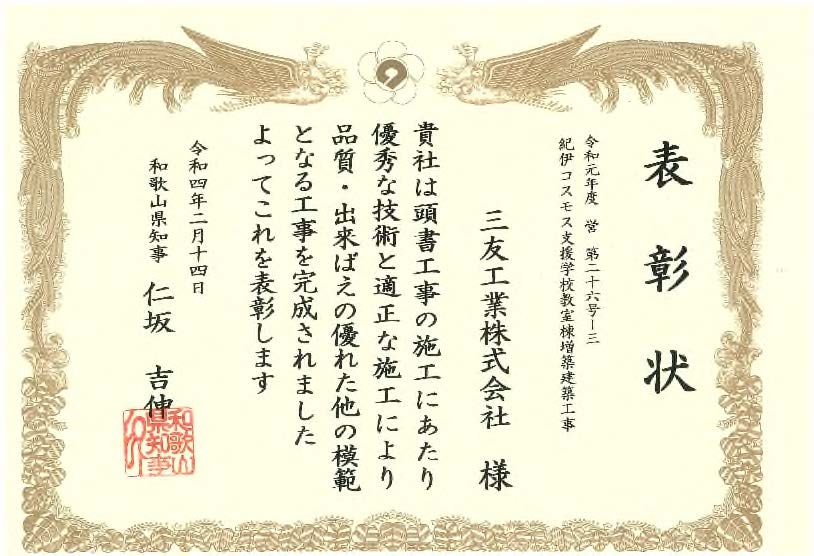 表彰状
令和元年度 営 第二十六号ー三
紀伊コスモス支援学校教室棟増築建築工事
三友工業株式会社 様
貴社は頭書工事の施工にあたり
優秀な技術と適正な施工により
品質・出来ばえの優れた他の模範
となる工事を完成されました
よってこれを表彰します
令和四年二月十四日
和歌山県知事 仁坂 吉伸
和歌山
県知事